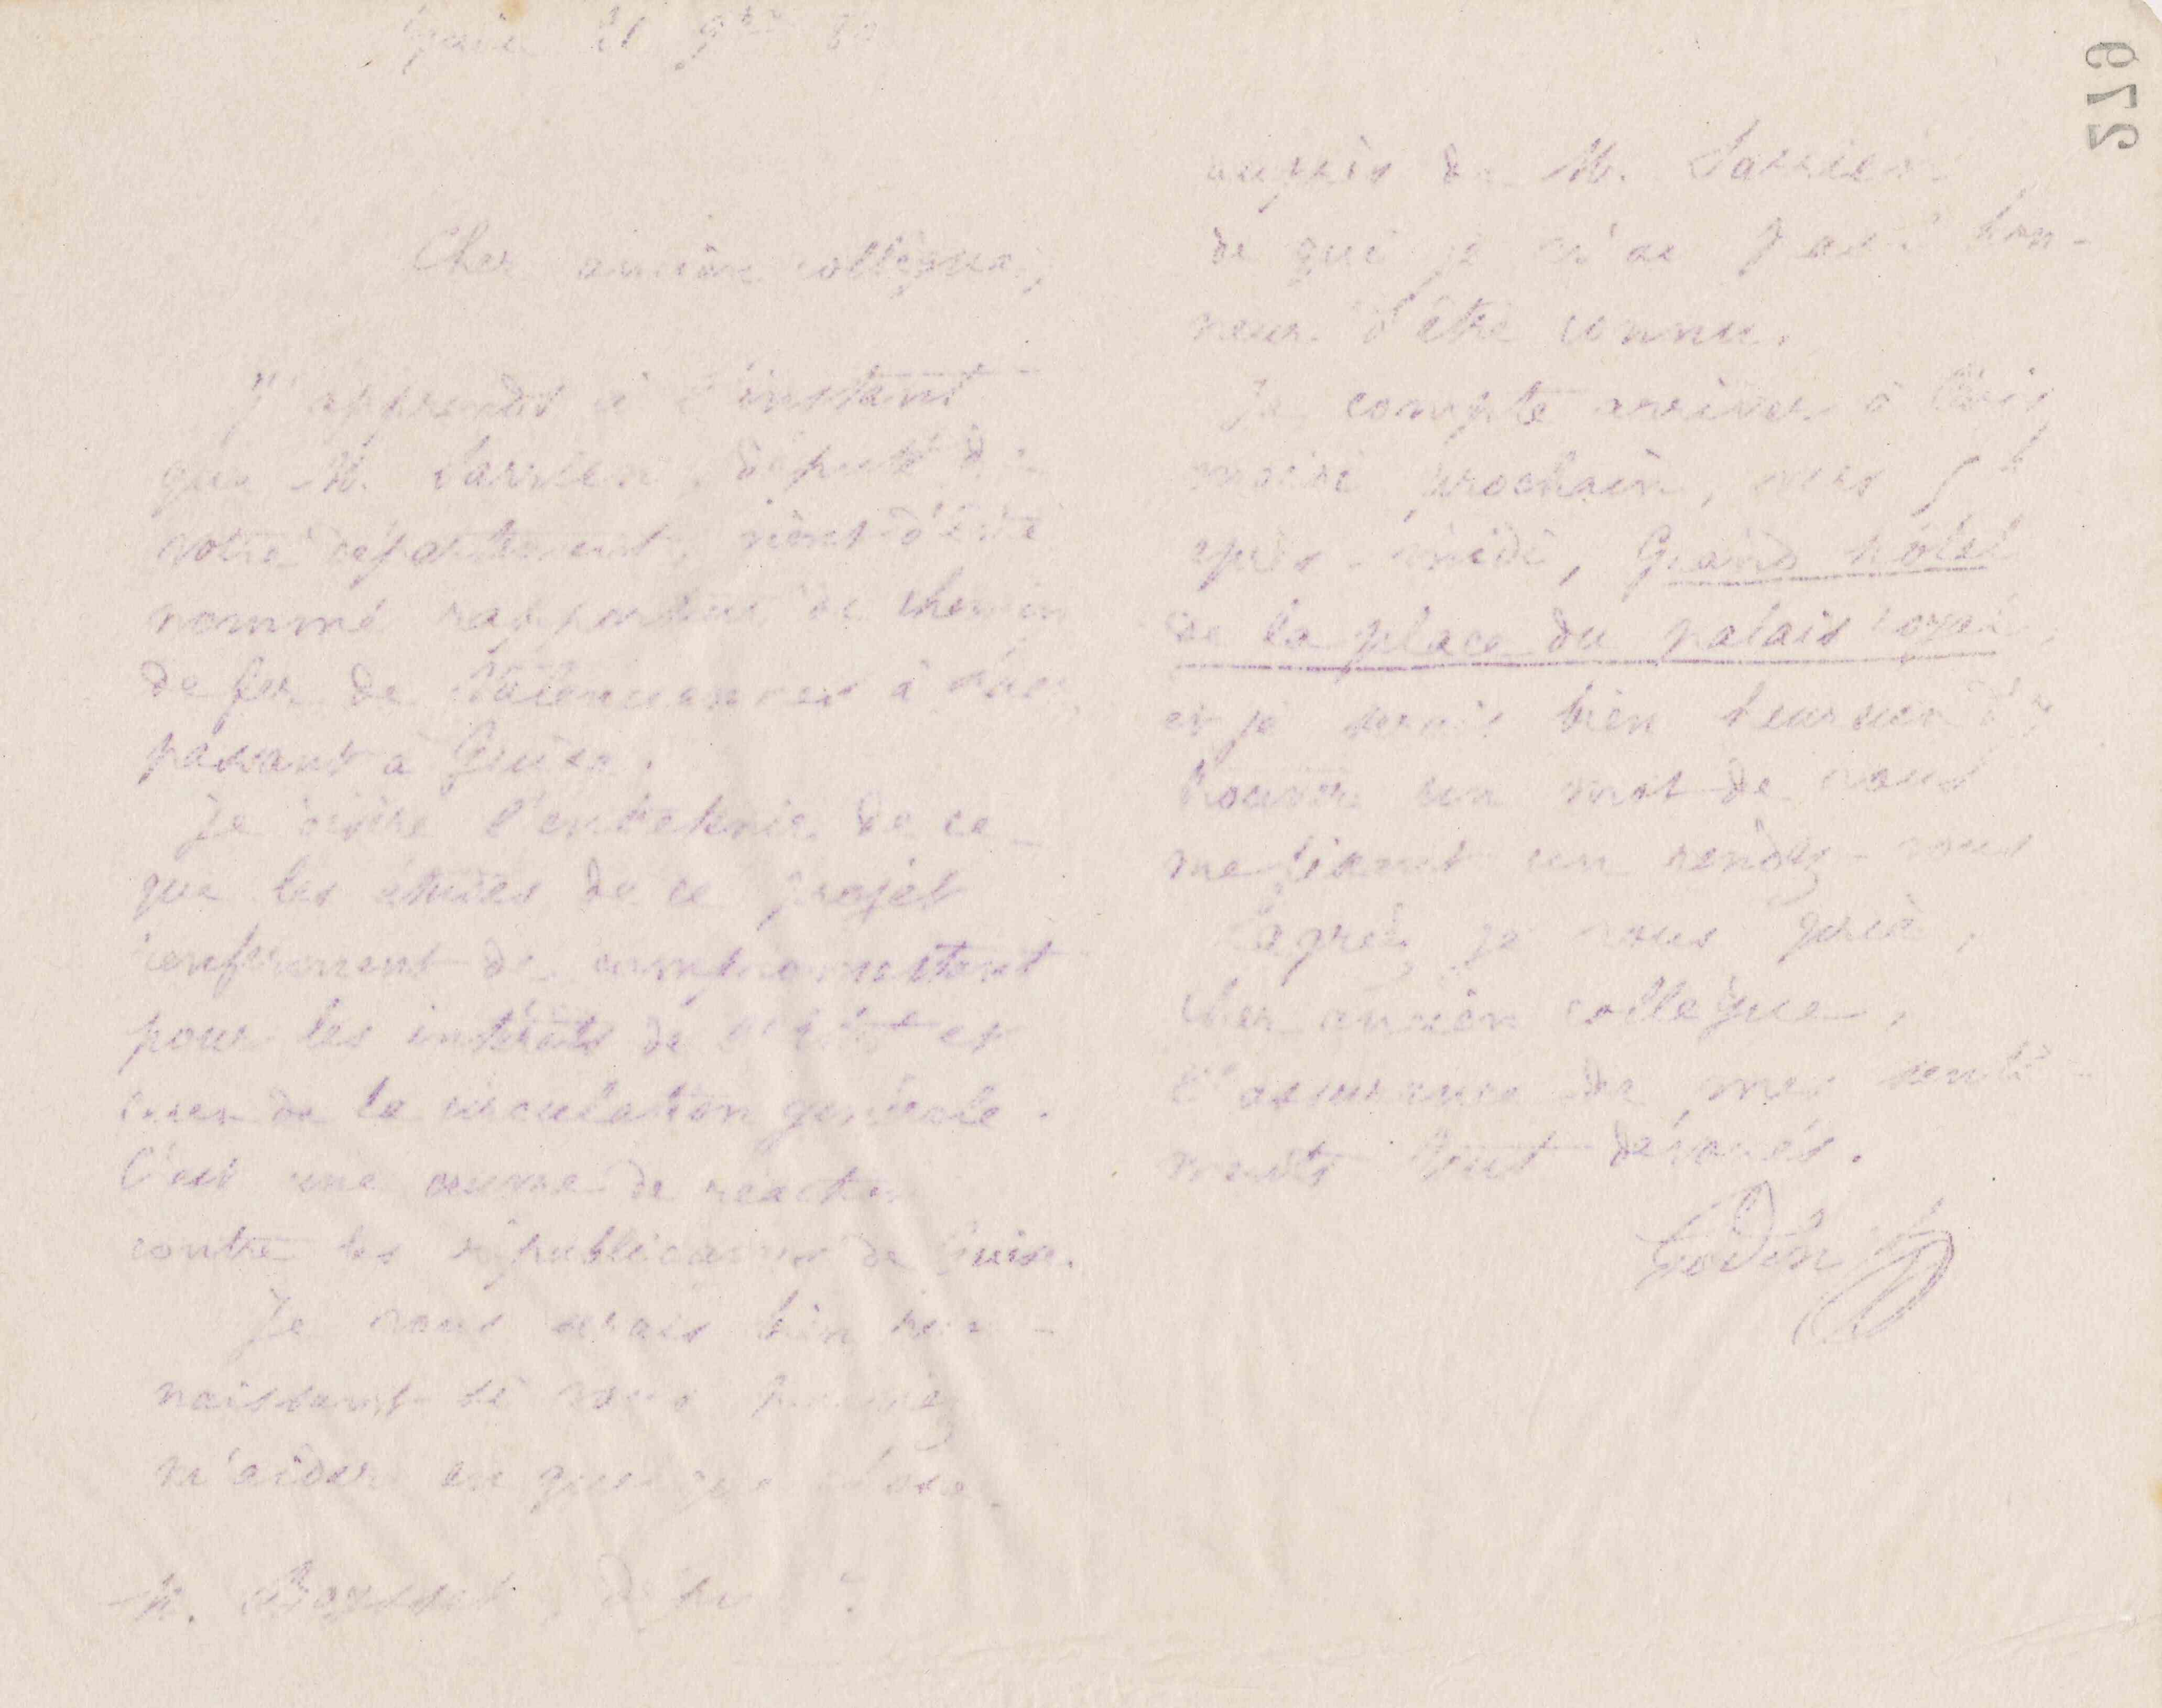 Guise 21 9bre 80
Cher ancien collègue,
J'apprends à l'instant
que M. Sarrien, député de
votre département, vient d'être
nommé rapporteur du chemin
de fer de Valenciennes à
passant à Guise.
Je désire l'entretenir de ce
que les études de ce projet
renferment de compromettant
pour les intérêts de l'Etat et
ceux de la circulation générale.
C'est une œuvre de réaction
contre les républicains de Guise.
Je vous serais bien recon-
naissant si vous pouviez
m'aider en quelque chose
M. Boysset, député
auprès de M. Sarrien
de qui je n'ai pas l'hon-
neur d'être connu.
Je compte arriver à Paris
mardi prochain, vers 5h
après-midi, Grand hôtel
de la place du palais royal,
et je serais bien heureux d'y
trouver un mot de vous
me fixant un rendez-vous
Agréez je vous prie,
cher ancien collègue,
l'assurance de mes senti-
ments tout dévoués.
Godin
229